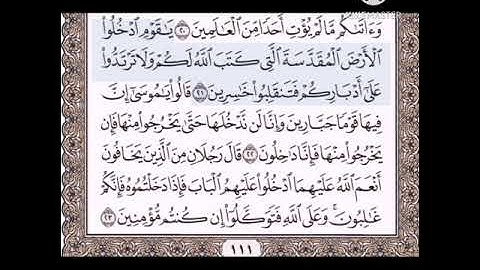 وَءَاتَىٰكُم مَّا لَمْ يُؤْتِ أَحَدًا مِّنَ ٱلْعَٰلَمِينَ ٢٠ يَٰقَوْمِ ٱدْخُلُوا۟
ٱلْأَرْضَ ٱلْمُقَدَّسَةَ ٱلَّتِى كَتَبَ ٱللَّهُ لَكُمْ وَلَا تَرْتَدُّوا۟
عَلَىٰٓ أَدْبَارِكُمْ فَتَنقَلِبُوا۟ خَٰسِرِينَ ٢١ قَالُوا۟ يَٰمُوسَىٰٓ إِنَّ
فِيهَا قَوْمًا جَبَّارِينَ وَإِنَّا لَن نَّدْخُلَهَا حَتَّىٰ يَخْرُجُوا۟ مِنْهَا فَإِن
يَخْرُجُوا۟ مِنْهَا فَإِنَّا دَٰخِلُونَ ٢٢ قَالَ رَجُلَانِ مِنَ ٱلَّذِينَ يَخَافُونَ
أَنْعَمَ ٱللَّهُ عَلَيْهِمَا ٱدْخُلُوا۟ عَلَيْهِمُ ٱلْبَابَ فَإِذَا دَخَلْتُمُوهُ فَإِنَّكُمْ
غَٰلِبُونَ ۚ وَعَلَى ٱللَّهِ فَتَوَكَّلُوٓا۟ إِن كُنتُم مُّؤْمِنِينَ ٢٣
١١١